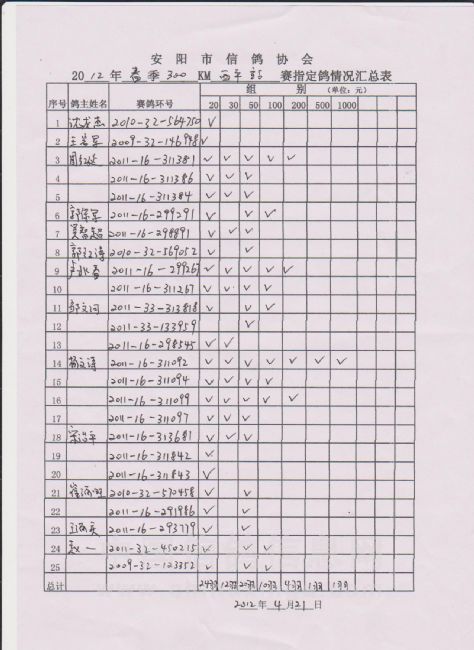 安阳市信鸽协会
2012年 春季 300 KM 西平站 赛指定鸽情况汇总表
序号 鸽主姓名 赛鸽环号 组别 (单位:元)
20 30 50 100 200 500 1000
1 沈龙杰 2010-32-564750 ✓
2 2009-32-146948 ✓
3 2011-16-311381 ✓ ✓ ✓ ✓ ✓
4 2011-16-311386 ✓ ✓ ✓
5 2011-16-311384 ✓ ✓ ✓
6 郭保军 2011-16-299291 ✓ ✓ ✓
7 2011-16-298891 ✓ ✓ ✓
8 郭红涛 2010-32-569052 ✓ ✓
9 2011-16-299267 ✓ ✓ ✓ ✓ ✓
10 2011-16-311267 ✓ ✓ ✓ ✓
11 郭文河 2011-33-313818 ✓ ✓
12 2011-33-133959 ✓
13 2011-16-298545 ✓ ✓
14 杨文涛 2011-16-311092 ✓ ✓ ✓ ✓ ✓ ✓ ✓
15 2011-16-311094 ✓ ✓ ✓ ✓
16 2011-16-311099 ✓ ✓ ✓ ✓ ✓
17 2011-16-311097 ✓ ✓ ✓
18 2011-16-313681 ✓ ✓ ✓
19 2011-16-311842 ✓
20 2011-16-311843 ✓
21 2010-32-570458 ✓ ✓
22 2011-16-291986 ✓ ✓
23 2011-16-293779 ✓ ✓
24 赵一 2011-32-450215 ✓ ✓ ✓
25 2009-32-123352 ✓ ✓ ✓
总计 24羽 12羽 20羽 10羽 4羽 1羽 1羽
2012年 4月21日